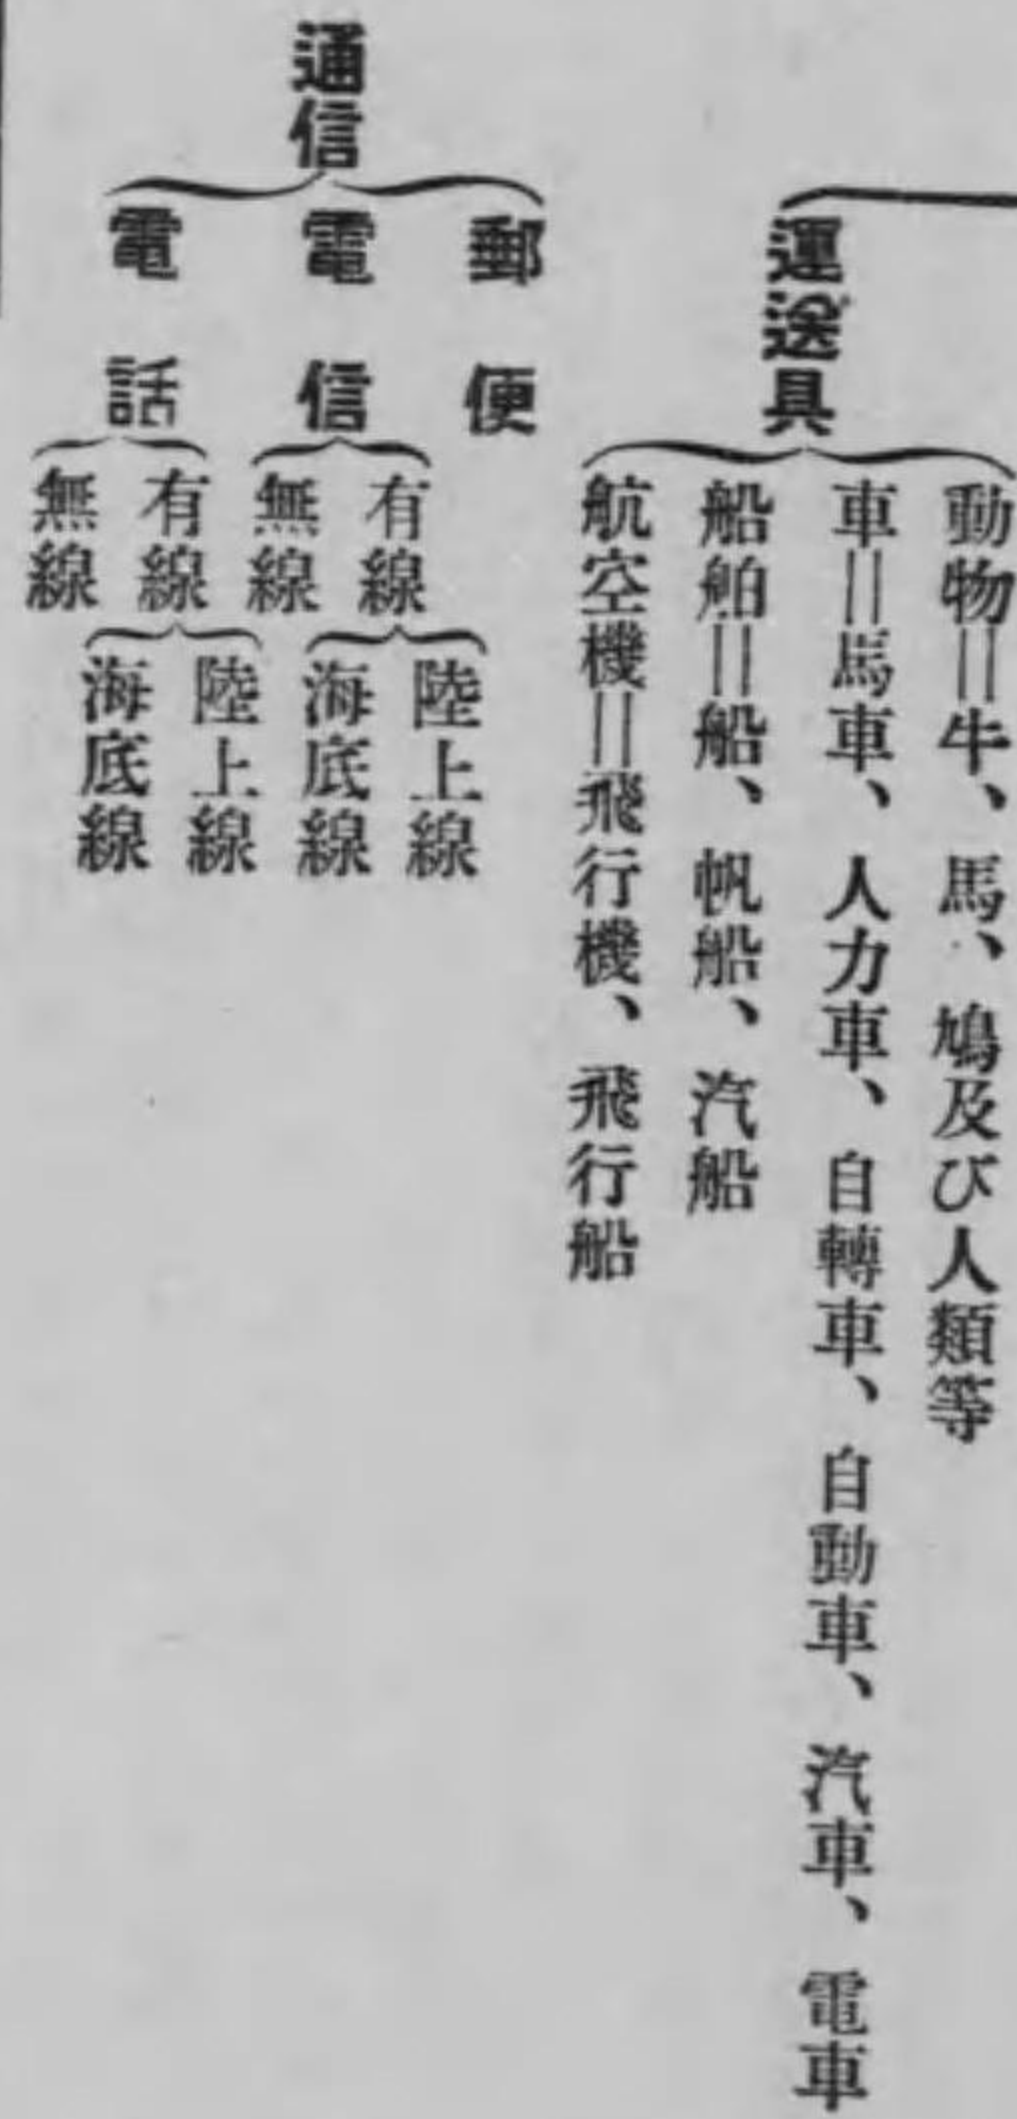 運送具
動物＝牛、馬、鳩及び人類等
車＝馬車、人力車、自轉車、自動車、汽車、電車
船舶＝船、帆船、汽船
航空機＝飛行機、飛行船
通信
郵便
電信
有線
陸上線
海底線
無線
電話
有線
陸上線
海底線
無線